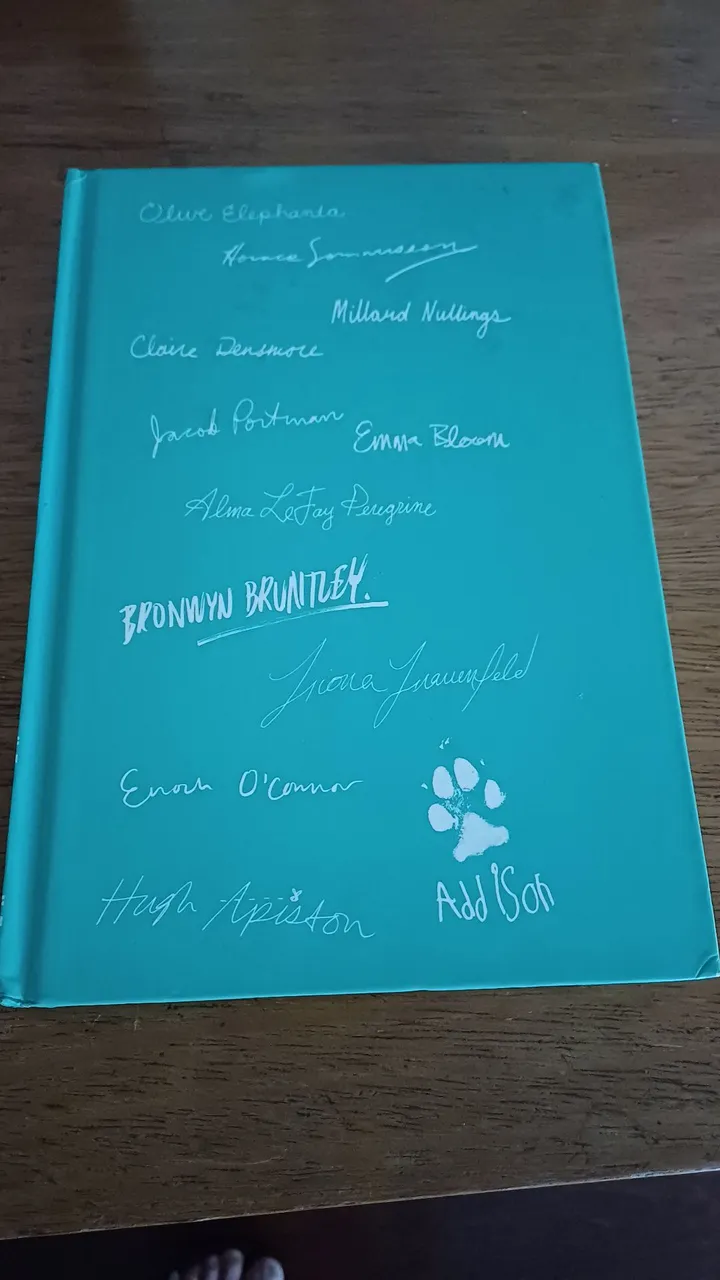 Olive Elephanta
Horace Somnusson
Millard Nullings
Claire Densmore
Jacob Portman
Emma Bloom
Alma LeFay Peregrine
BRONWYN BRUNTLEY.
Fiona Frauenfeld
Enoch O'Connor
Addison
Hugh Apiston